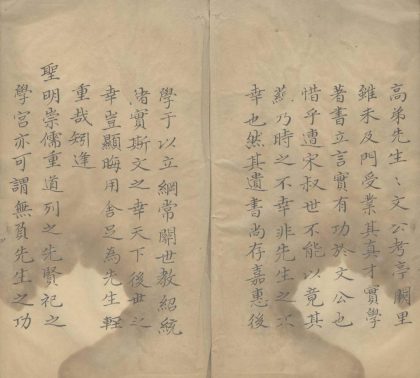 高弟先生〻文公考亭明里
雖未及門受業其真才實學
著書立言實有功於文公也
惜乎遭宋叔世不能以竟其
蘊乃時之不幸非先生之不
幸也然其遺書尚存嘉惠後
學于以立綱常關世教紹統
緒實斯文之幸天下後世之
幸豈顯晦用舍足為先生輕
重哉矧逢
聖明崇儒重道列之先賢祀之
學宮亦可謂無負先生之功